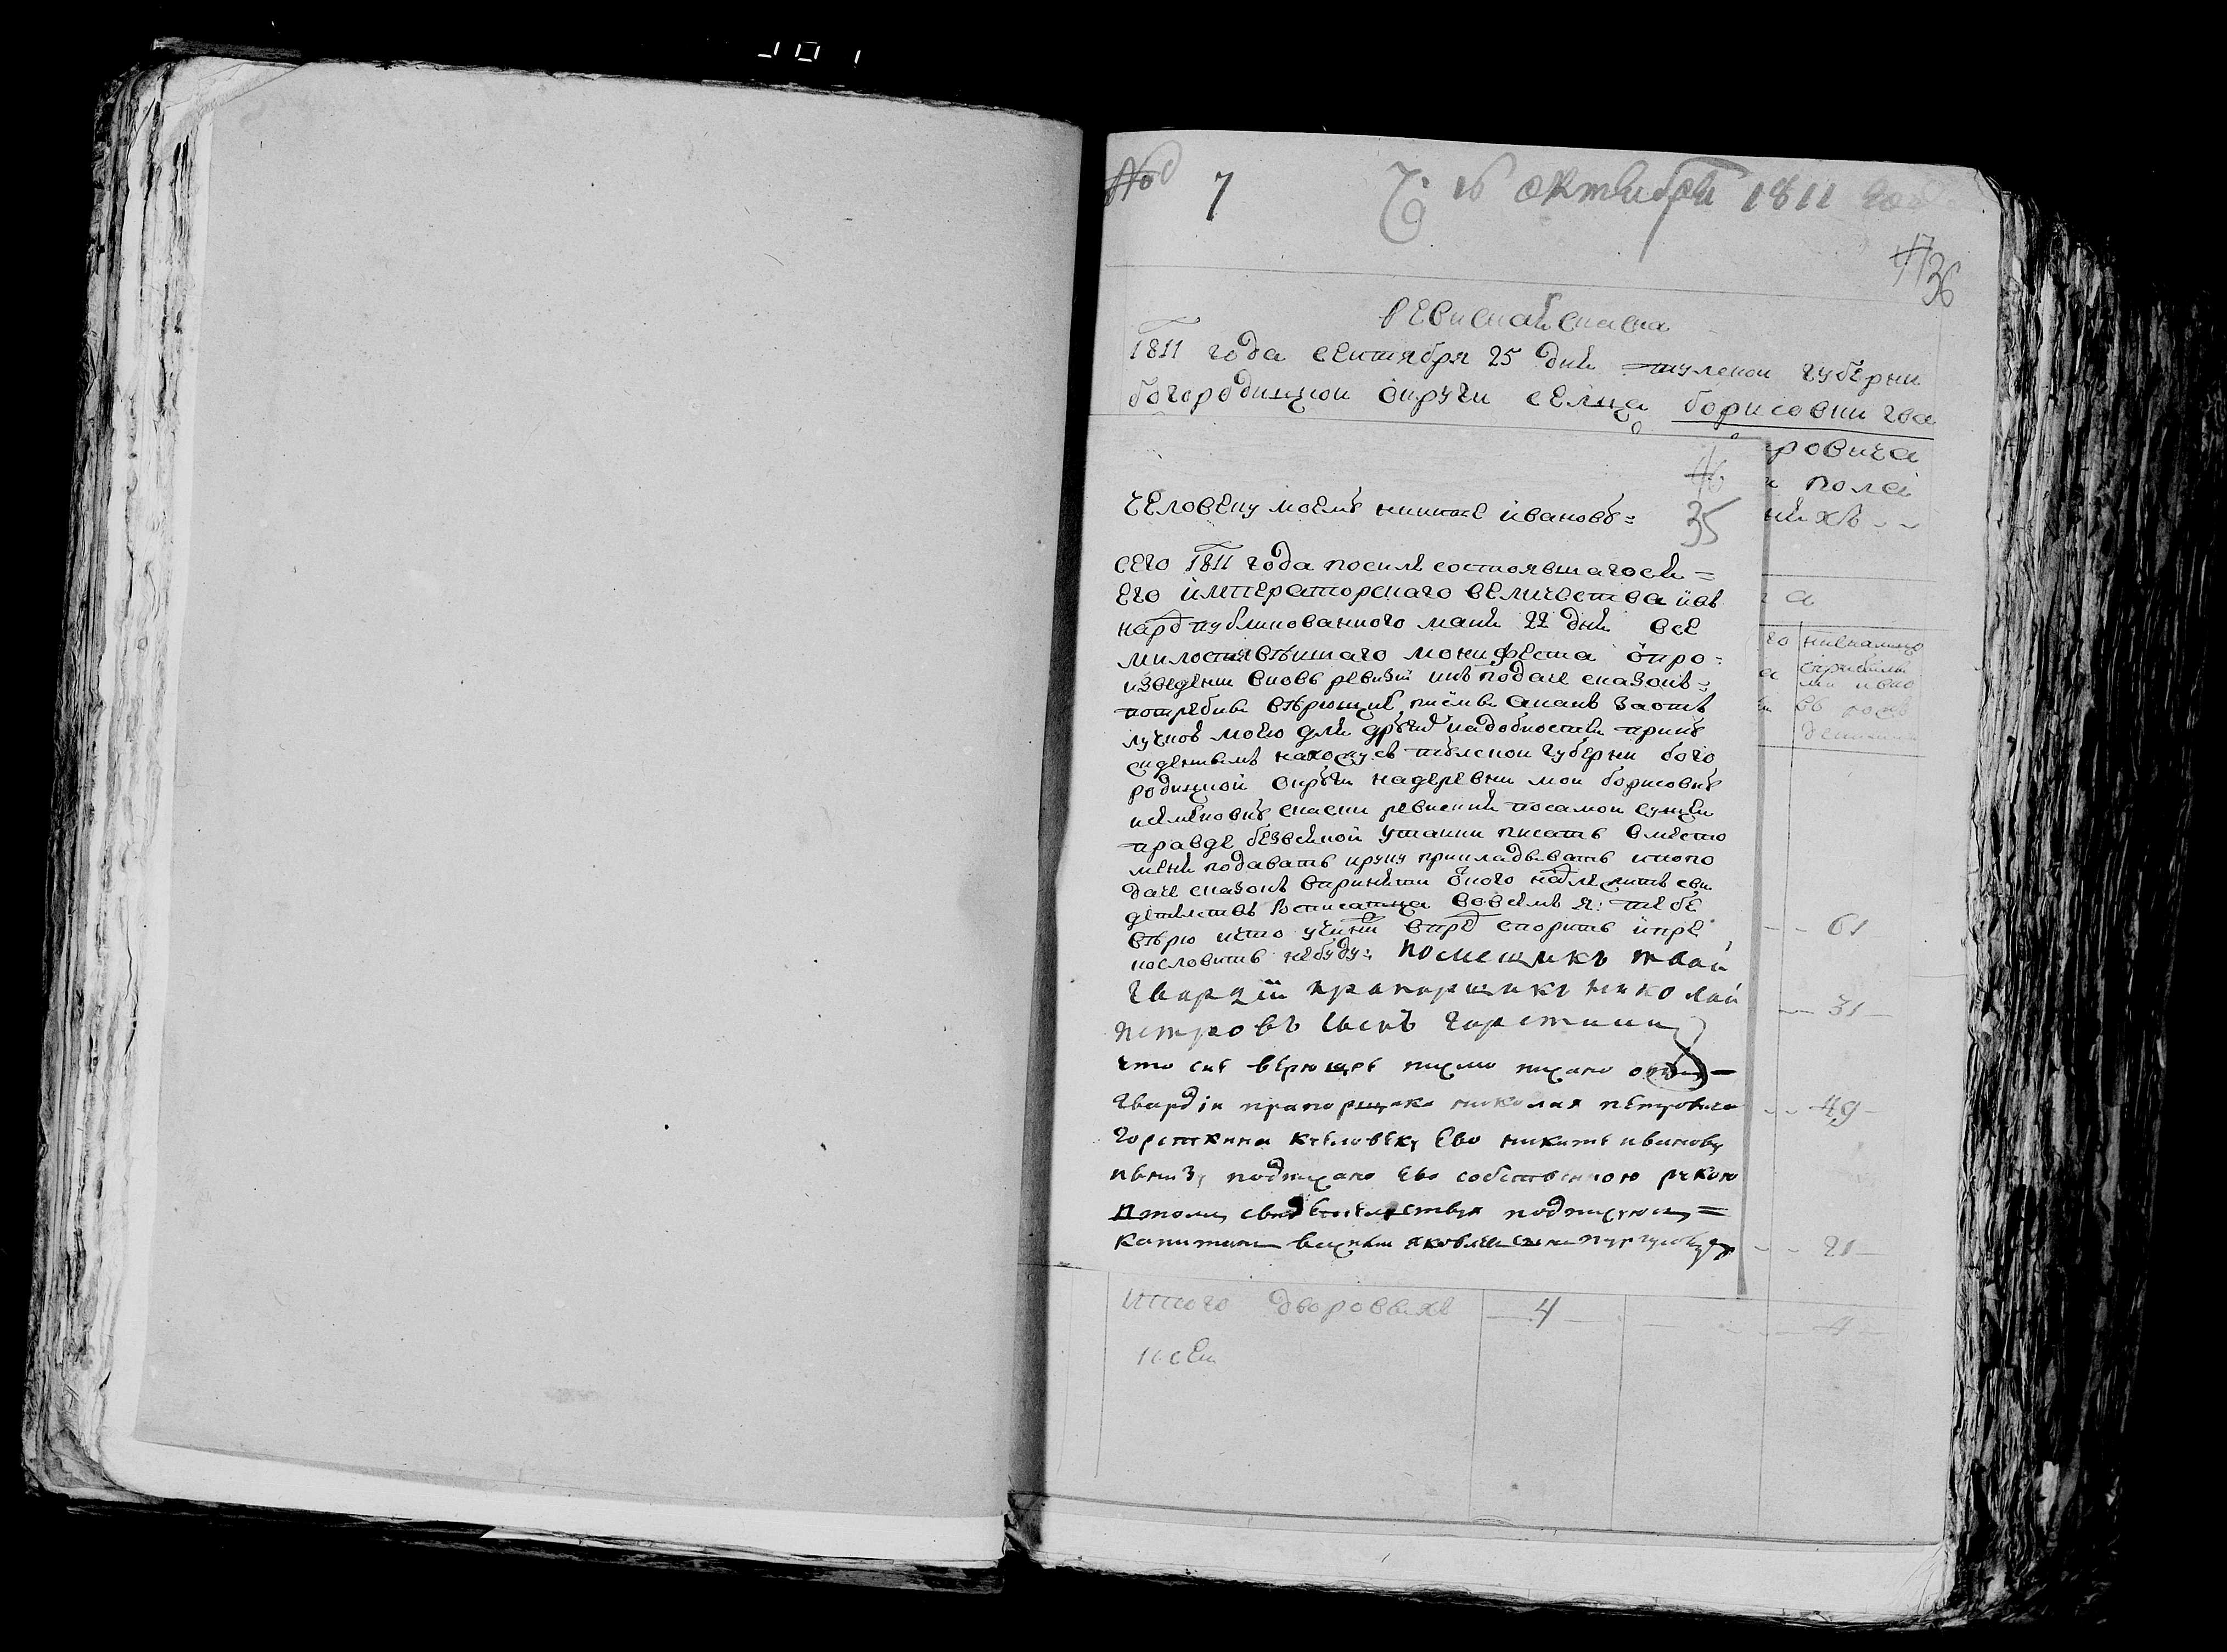 № 7
Ч: 16 октября 1811 года
47 36
Ревиская скаска
1811 года сентября 25 дня тулской губерни
богородицкой округи селца борисовки гва
ровича
и полей
нихъ
46
35
человеку моему никите иванову =
сего 1811 года посиле состоявшагося =
его императорскаго величества ивъ
народ публикованного маия 22 дня все
милостивѣишаго монифеста опро=
изведени вновь ревизии инъ подаче сказокъ =
потребны вѣрющие писмы акакъ заотъ
лучкою моею для другихъ надобностей прину
жденымъ нахожусь тулской губерни бого
родицкой округи надеревни мои борисовку
исемёновку скаски ревиския посамой сущей
правде безвсякой утайки писать вместо
меня подавать ируку прикладывать ипопо
даче сказокъ впринятии оного надлежитъ сви
детелствѣ росписатца вовсемъ я: тебе
вѣрю ичто учинишъ впредъ спорить ипре
кословить небуду: помещикъ твой
гвардїи прапорщикъ николай
петровъ сынъ горсткинъ
что сие верющее писмо писано отъ
гвардіи прапорщика николая петровича
горсткина кчеловеку ево никите иванову
ивнизу подписано ево собственною рукою
втомъ свидетелствуя подписуюсь =
капитанъ василий яковлевъ сынъ
а
го
61
31
49
21
Итого дворовыхъ 4 4